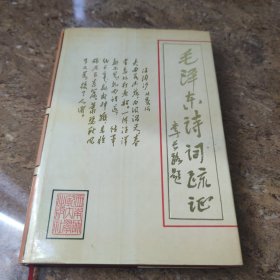 毛泽东诗词疏证
李长路题
浪淘沙 北戴河
大雨落幽燕 白浪滔天
秦皇岛外打鱼船 一片汪洋
都不见 知向谁边 往事
越千年 魏武挥鞭 东临
碣石有遗篇 萧瑟秋风
今又是 换了人间